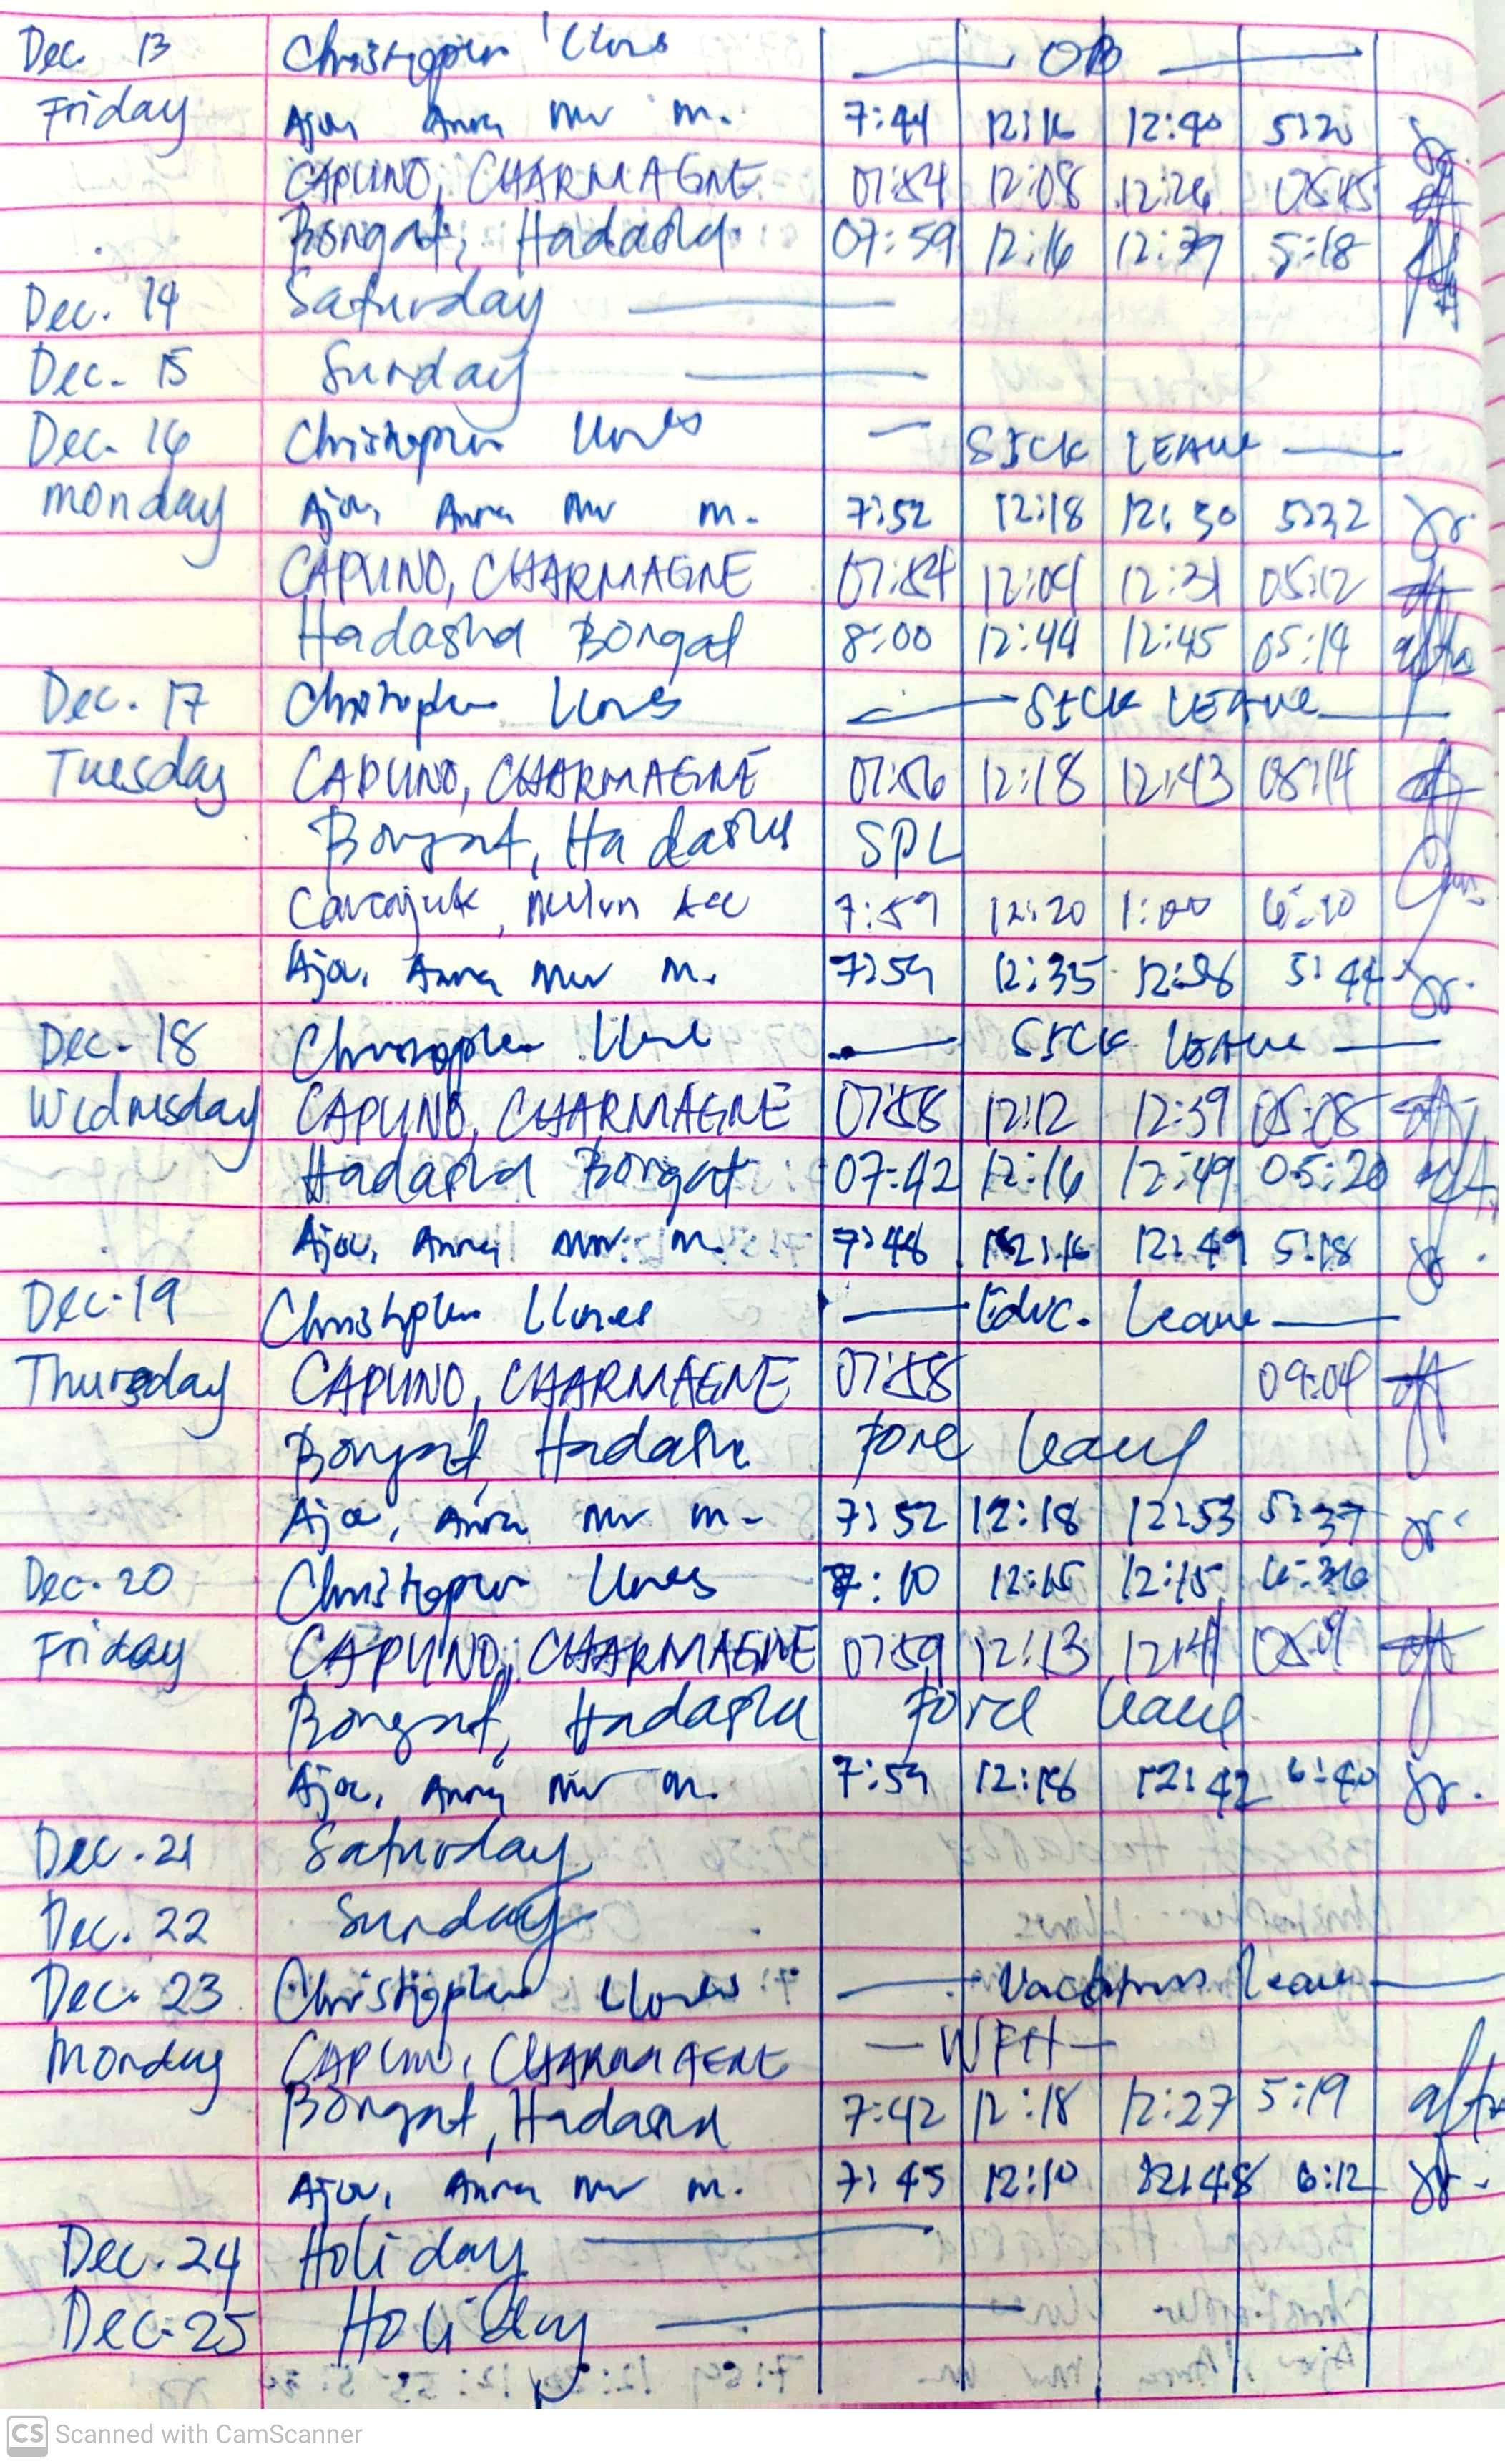 Dec. 13 Christopher Llones — OB —
Friday Ajou, Anna Mir M. 7:44 12:16 12:40 5:20
CAPUNO, CHARMAGNE 07:54 12:08 12:26 05:15
Bongat, Hadasha 07:59 12:16 12:39 5:18
Dec. 14 Saturday —
Dec. 15 Sunday —
Dec. 16 Christopher Llones — SICK LEAVE —
Monday Anna M. 7:52 12:18 12:30 5:32
CAPUNO, CHARMAGNE 07:54 12:04 12:31 05:12
Hadasha Bongat 8:00 12:44 12:45 05:14
Dec. 17 Christopher Llones — SICK LEAVE —
Tuesday CAPUNO, CHARMAGNE 07:56 12:18 12:43 05:14
Bongat, Hadasha SPL
7:59 12:20 1:00
Anna M. 7:59 12:35 5:44
Dec. 18 Christopher — SICK LEAVE —
Wednesday CAPUNO, CHARMAGNE 07:58 12:12 12:39 05:08
Hadasha Bongat 07:42 12:16 12:49 05:20
Anna M. 7:48 12:16 12:49 5:18
Dec. 19 Christopher Llones — Educ. Leave —
Thursday CAPUNO, CHARMAGNE 07:58 09:04
Bongat, Hadasha Force leave
Anna M. 7:52 12:18 12:53 5:37
Dec. 20 Christopher Llones 7:10 12:15 12:15 6:36
Friday CAPUNO, CHARMAGNE 07:59 12:13 12:41
Bongat, Hadasha Force leave
Anna M. 7:59 12:18 12:42 6:40
Dec. 21 Saturday
Dec. 22 Sunday
Dec. 23 Christopher Llones — Vacation leave —
Monday CAPUNO, CHARMAGNE — WFH —
Bongat, Hadasha 7:42 12:18 12:27 5:19
Anna M. 7:45 12:10 12:48 6:12
Dec. 24 Holiday —
Dec. 25 Holiday —
CS Scanned with CamScanner